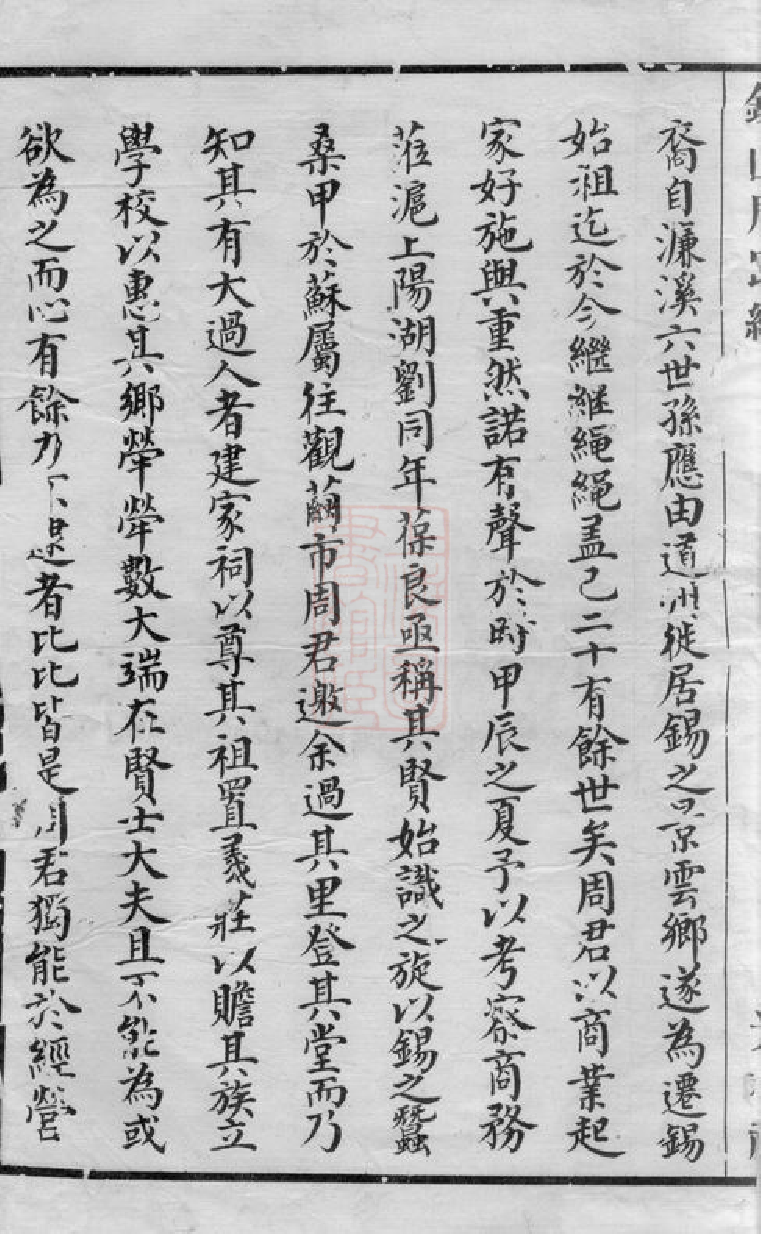 裔自濂溪六世孫應由道州徙居錫之景雲鄉遂為遷錫
始祖迄於今繼繼繩繩盖已二十有餘世矣周君以商業起
家好施與重然諾有聲於時甲辰之夏予以考察商務
蒞滬上陽湖劉同年葆良亟稱其賢始識之旋以錫之蠶
桑甲於蘇屬往觀繭市周君邀余過其里登其堂而乃
知其有大過人者建家祠以尊其祖置義莊以贍其族立
學校以惠其鄉犖犖數大端在賢士大夫且不能為或
欲為之而心有餘力不逮者比比皆是周君獨能於經營